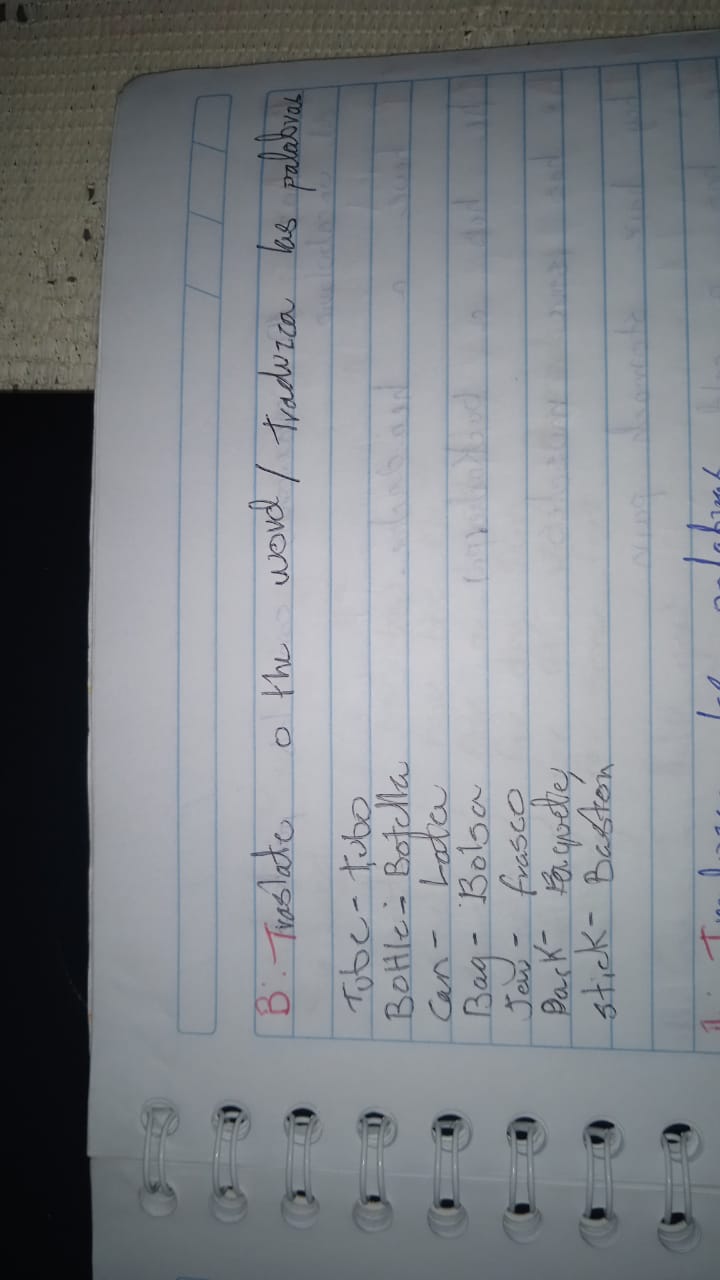 B: Traslate o the word / Traduzca las palabras
Tube - tubo
Bottle - Botella
Can - Lata
Bag - Bolsa
frasco
Pack - Paquete
stick - Bastón